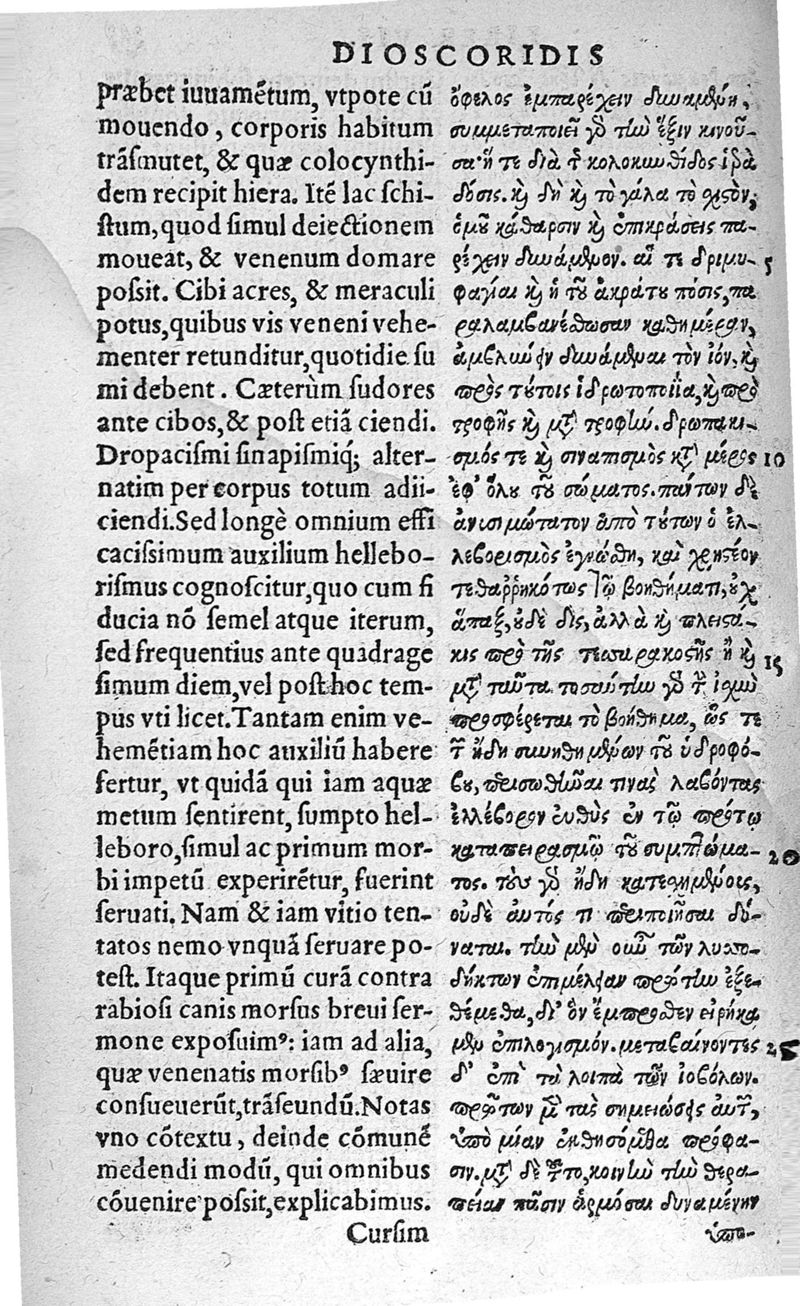 DIOSCORIDIS
præbet iuuamẽtum, vtpote cũ
mouendo, corporis habitum
trãſmutet, & quæ colocynthi-
dem recipit hiera. Itẽ lac ſchi-
ſtum, quod ſimul deiectionem
moueat, & venenum domare
poſsit. Cibi acres, & meraculi
potus, quibus vis veneni vehe-
menter retunditur, quotidie ſu
mi debent. Cæterùm ſudores
ante cibos, & poſt etiã ciendi.
Dropaciſmi ſinapiſmiq́; alter-
natim per corpus totum adii-
ciendi. Sed longè omnium effi
caciſsimum auxilium hellebo-
riſmus cognoſcitur, quo cum fi
ducia nõ ſemel atque iterum,
ſed frequentius ante quadrage
ſimum diem, vel poſt hoc tem-
pus vti licet. Tantam enim ve-
hemẽtiam hoc auxiliũ habere
fertur, vt quidã qui iam aquæ
metum ſentirent, ſumpto hel-
leboro, ſimul ac primum mor-
bi impetũ experirẽtur, fuerint
ſeruati. Nam & iam vitio ten-
tatos nemo vnquã ſeruare po-
teſt. Itaque primũ curã contra
rabioſi canis morſus breui ſer-
mone expoſuimꝰ: iam ad alia,
quæ venenatis morſibꝰ ſæuire
conſueuerũt, trãſeundũ. Notas
vno cõtextu, deinde cõmunẽ
medendi modũ, qui omnibus
cõuenire poſsit, explicabimus.
Curſim
ὄφελος ἐμπαρέχειν δυναμένη,
συμμεταποιεῖ γὸ τὴν ἕξιν κινοῦ-
σα· ἥ τε διὰ τ̃ κολοκυνθίδος ἱερὰ
δόσις. ϗ δὴ ϗ τὸ γάλα τὸ σχιστὸν,
ὁμοῦ κάθαρσιν ϗ ἐπικράσεις πα-
ρέχειν δυνάμενον. αἵ τε δριμυ- 5
φαγίαι ϗ ἡ τοῦ ἀκράτου πόσις, πα
ραλαμβανέσθωσαν καθημέραν,
ἀμβλύνειν δυνάμεναι τὸν ἰόν, ϗ
πρὸς τούτοις ἱδρωτοποιΐα, ϗ πρὸ
τροφῆς ϗ μτ̃ τροφὴν. δρωπακι-
σμός τε ϗ σιναπισμὸς κτ̃ μέρος 10
ἐφ' ὅλου τοῦ σώματος. πάντων δὲ
ἀνυσιμώτατον ἀπὸ τούτων ὁ ἑλ-
λεβορισμὸς ἐγνώσθη, καὶ χρηστέον
τεθαῤῥηκότως τῷ βοηθήματι, οὐχ
ἅπαξ, οὐδὲ δὶς, ἀλλὰ ϗ πλειστά-
κις πρὸ τῆς τεσσαρακοστῆς ἢ ϗ 15
μτ̃ ταῦτα. τοσαύτην γὸ τ̃ ἰσχὺν
προσφέρεται τὸ βοήθημα, ὥς τε
τ̃ ἤδη συνηθημένων τοῦ ὑδροφό-
βου, περισωθῆναι τινὰς λαβόντας
ἑλλέβορον εὐθὺς ἐν τῷ πρώτῳ
καταπειρασμῷ τοῦ συμπτώμα- 20
τος. τοὺς γὸ ἤδη κατεχημένοις,
οὐδὲ αὐτός τι περιποιῆσαι δύ-
ναται. τὴν μὲν οὖν τῶν λυσσο-
δήκτων ἐπιμέλειαν πρώτην ἐξε-
θέμεθα, δι' ὃν ἔμπροσθεν εἰρήκα
μεν ἐπιλογισμόν. μεταβαίνοντες 25
δ' ἐπὶ τὰ λοιπὰ τῶν ἰοβόλων.
πρῶτον μ̃ τὰς σημειώσεις αὐτ̃,
ὑπὸ μίαν ἐκθησόμεθα πρόφα-
σιν. μτ̃ δὲ τοῦτο, κοινὴν τὴν θερα-
πείαν πᾶσιν ἁρμόσαι δυναμένην
ὑπο-